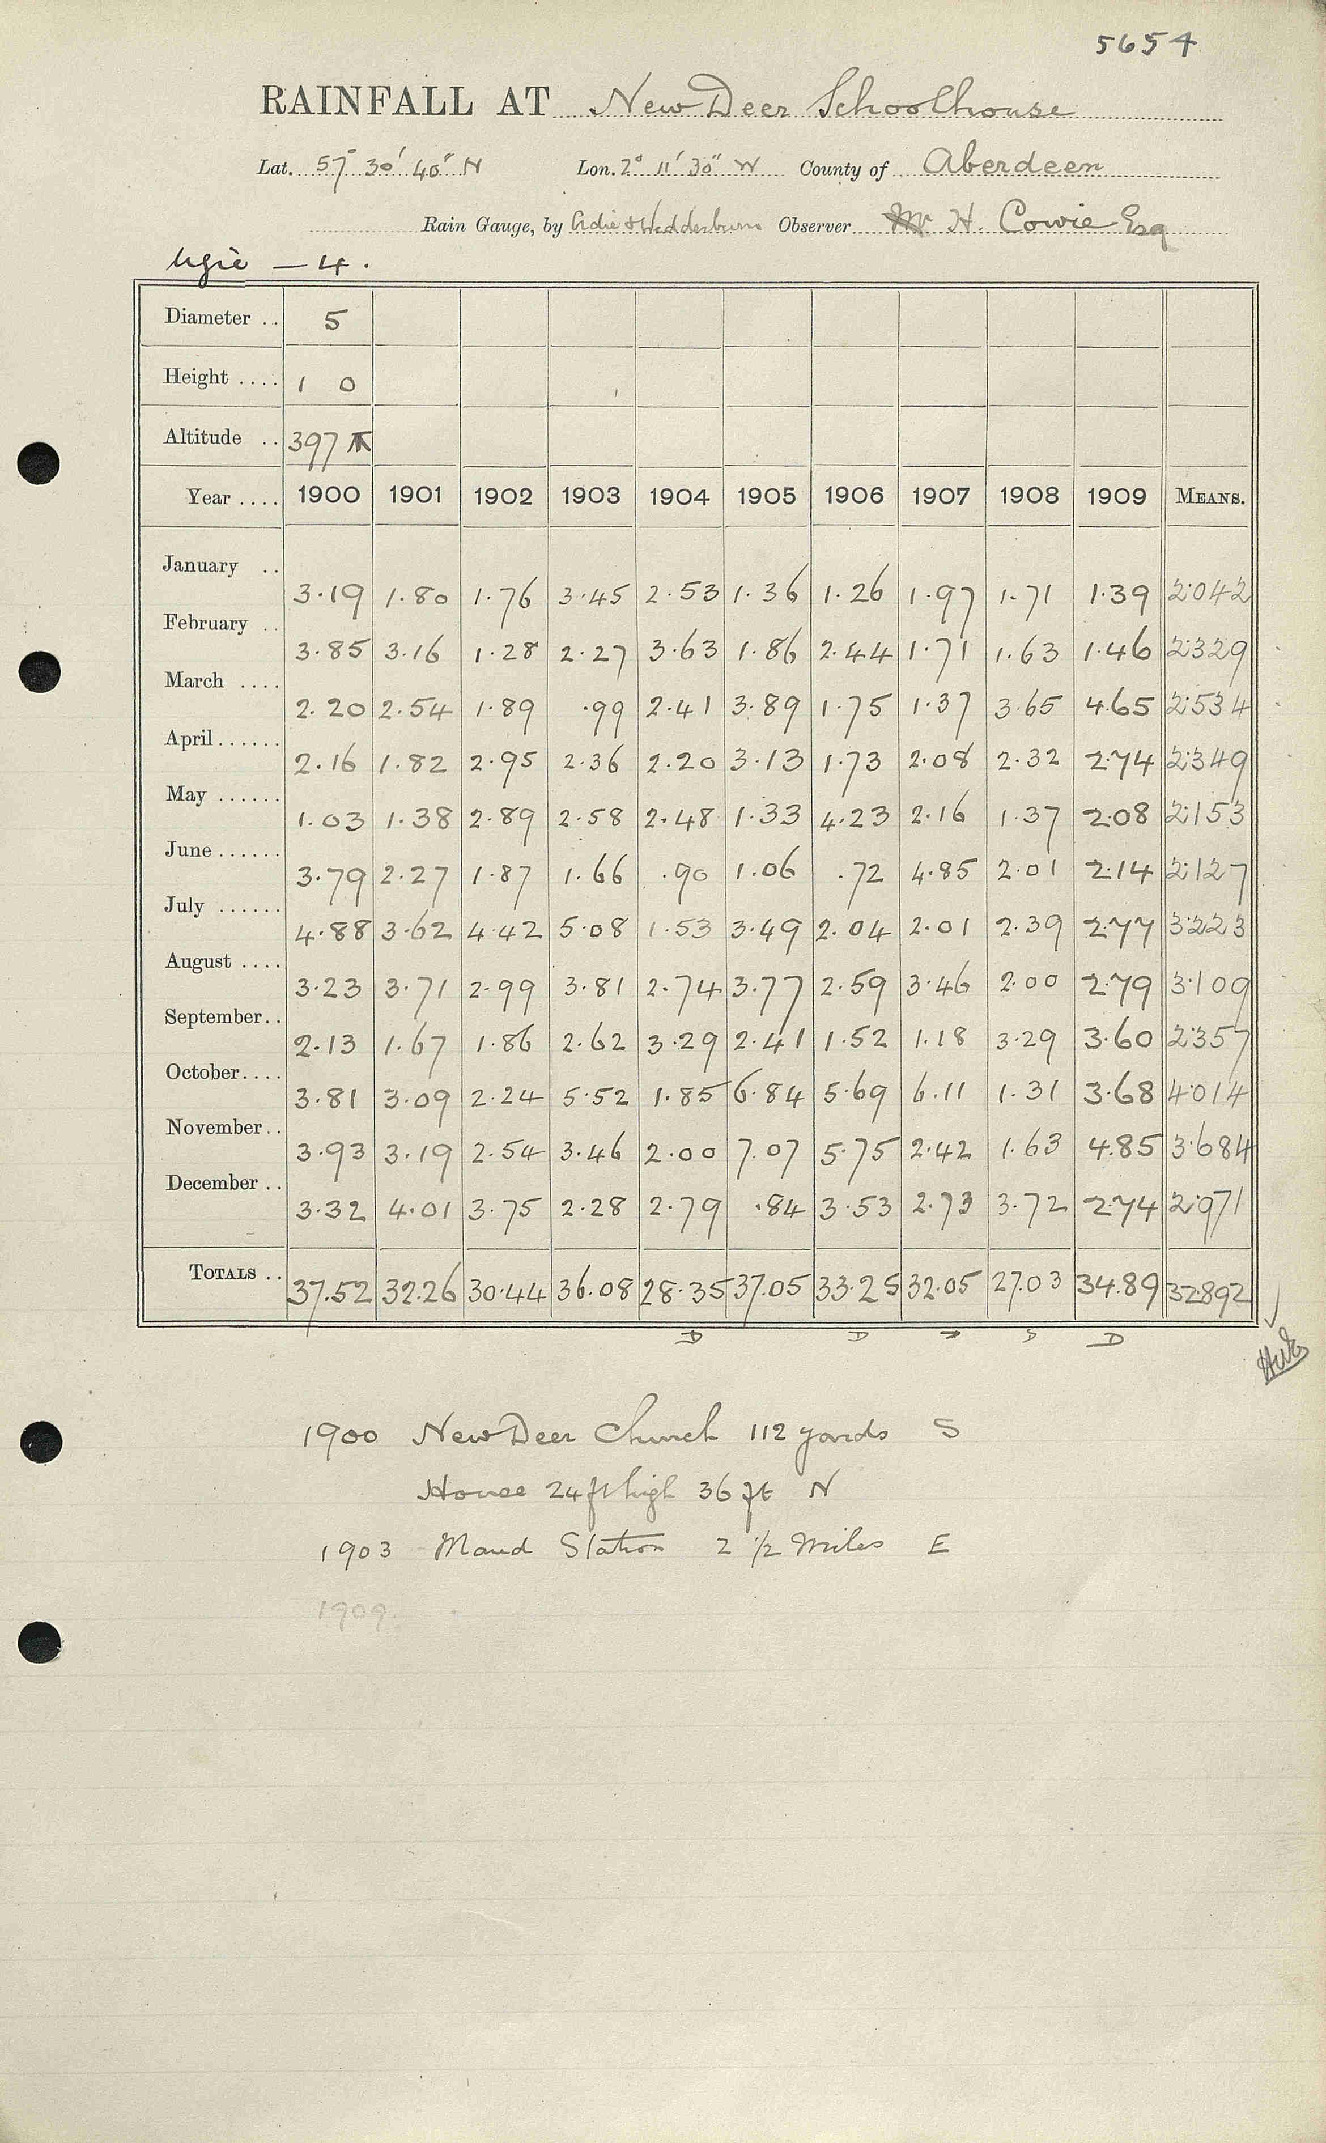 5654
RAINFALL AT New Deer Schoolhouse
Lat. 57° 30' 40" N Lon. 2° 11' 30" W County of Aberdeen
Rain Gauge, by Adie & Wedderburn Observer H. Cowie Esq
Ugie — 4.
Diameter .. 5
Height .... 1 0
Altitude .. 397
Year .... 1900 1901 1902 1903 1904 1905 1906 1907 1908 1909 MEANS.
January .. 3.19 1.80 1.76 3.45 2.53 1.36 1.26 1.97 1.71 1.39 2.042
February .. 3.85 3.16 1.28 2.27 3.63 1.86 2.44 1.71 1.63 1.46 2.329
March .... 2.20 2.54 1.89 .99 2.41 3.89 1.75 1.37 3.65 4.65 2.534
April ...... 2.16 1.82 2.95 2.36 2.20 3.13 1.73 2.08 2.32 2.74 2.349
May ...... 1.03 1.38 2.89 2.58 2.48 1.33 4.23 2.16 1.37 2.08 2.153
June ...... 3.79 2.27 1.87 1.66 .90 1.06 .72 4.85 2.01 2.14 2.127
July ...... 4.88 3.62 4.42 5.08 1.53 3.49 2.04 2.01 2.39 2.77 3.223
August .... 3.23 3.71 2.99 3.81 2.74 3.77 2.59 3.46 2.00 2.79 3.109
September.. 2.13 1.67 1.86 2.62 3.29 2.41 1.52 1.18 3.29 3.60 2.357
October.... 3.81 3.09 2.24 5.52 1.85 6.84 5.69 6.11 1.31 3.68 4.014
November.. 3.93 3.19 2.54 3.46 2.00 7.07 5.75 2.42 1.63 4.85 3.684
December .. 3.32 4.01 3.75 2.28 2.79 .84 3.53 2.73 3.72 2.74 2.971
TOTALS .. 37.52 32.26 30.44 36.08 28.35 37.05 33.25 32.05 27.03 34.89 32.892
D D D D D
1900 New Deer Church 112 yards S
House 24 ft high 36 ft N
1903 Maud Station 2 1/2 Miles E
1909.